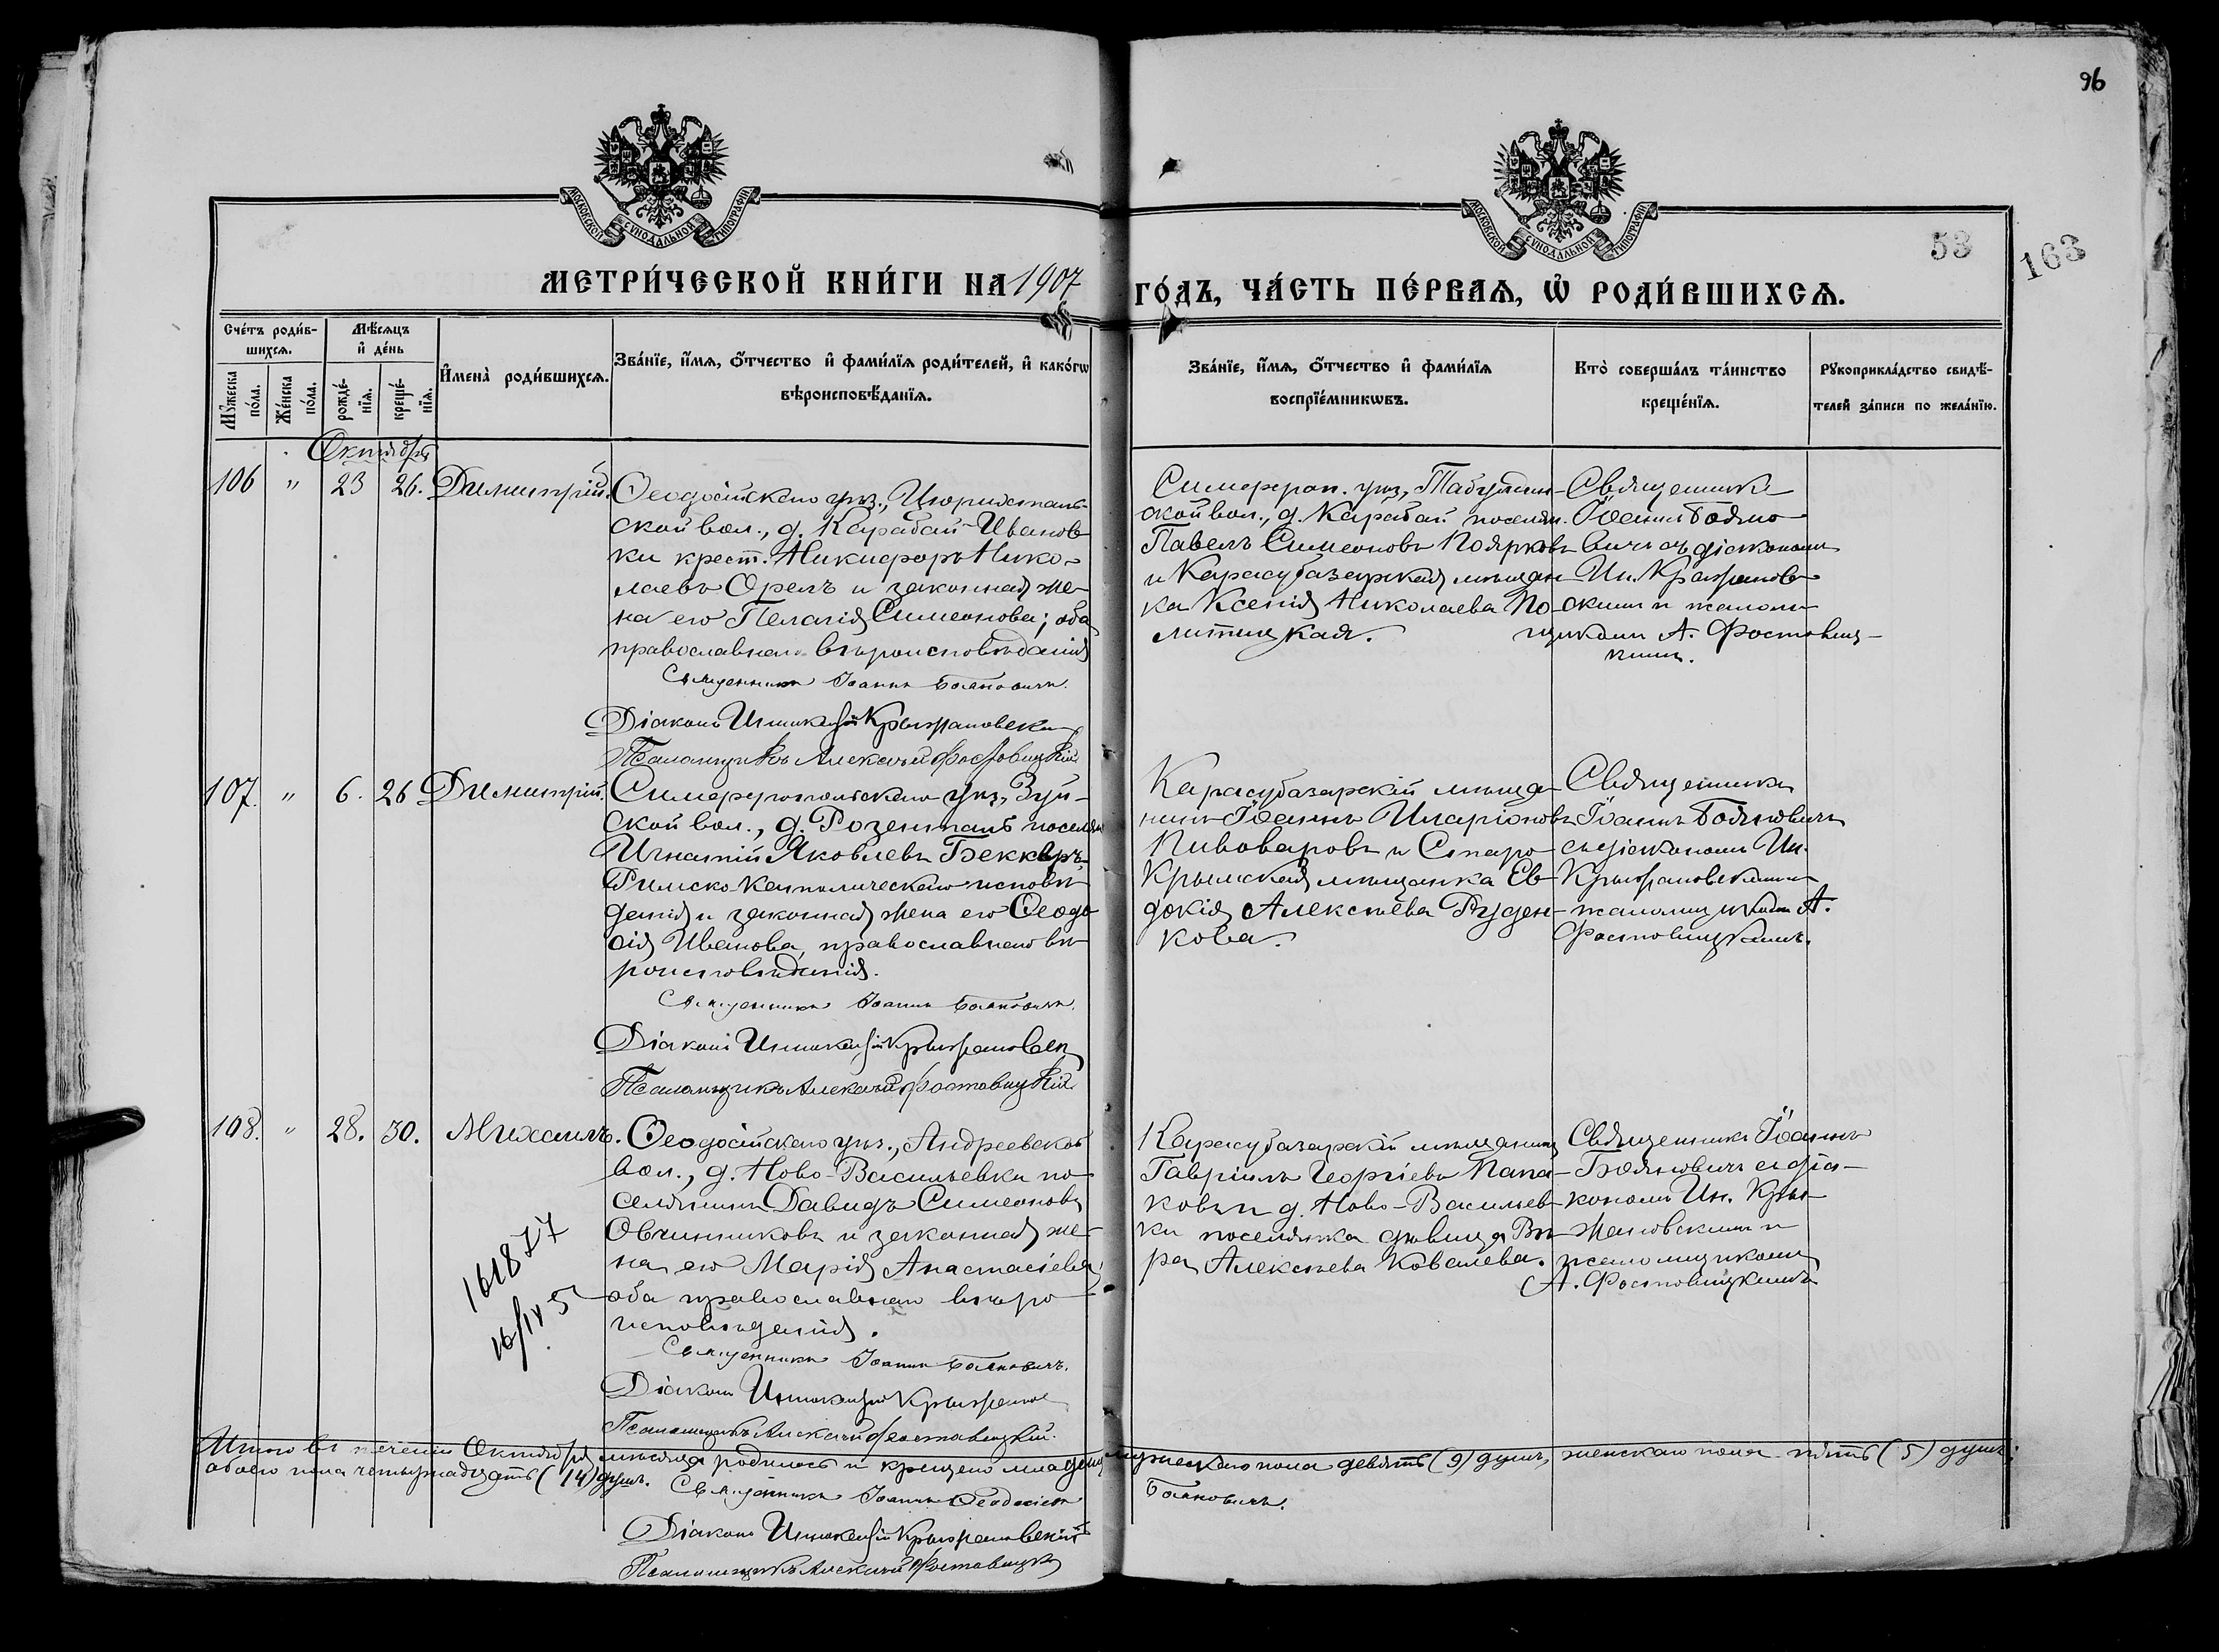 96
МОСКОВСКОЙ СѴНОДАЛЬНОЙ ТИПОГРАФІИ
МОСКОВСКОЙ СѴНОДАЛЬНОЙ ТИПОГРАФІИ
53
163
МЕТРИ́ЧЕСКОЙ КНИ́ГИ НА 1907
ГО́ДЪ, ЧА́СТЬ ПЕ́РВАѦ, Ѡ҆ РОДИ́ВШИХСѦ.
Сче́тъ роди́в-
шихсѧ.
Мѣ́сѧцъ
и҆ де́нь
Мꙋ́жеска
по́ла.
Же́нска
по́ла.
рожде́-
нїѧ.
креще́-
нїѧ.
И҆мена̀ роди́вшихсѧ.
Зва́нїе, и҆́мѧ, ѻ҆́тчество и҆ фами́лїѧ роди́телей, и҆ како́гѡ
вѣроисповѣ́данїѧ.
Зва́нїе, и҆́мѧ, ѻ҆́тчество и҆ фами́лїѧ
воспрїе́мникѡвъ.
Кто̀ соверша́лъ та́инство
креще́нїѧ.
Рꙋкоприкла́дство свидѣ́-
телей за́писи по жела́нїю.
Октября
106 " 23 26. Димитрій.
Ѳеодосійскаго уѣз., Цюрихталь-
ской вол., д. Карабай-Иванов-
ки крест. Никифоръ Нико-
лаевъ Орелъ и законная же-
на его Пелагія Симеонова; оба
православнаго вѣроисповѣданія
Священникъ Іоаннъ Боянович.
Діаконъ Иннокентій Крыжановскі
Псаломщикъ Алексѣй Фостовицкій.
Симфероп. уѣз., Табулдин-
ской вол., д. Карабай поселян.
Павелъ Симеоновъ Поярковъ
и Карасубазарская мѣщан-
ка Ксенія Николаева По-
литицкая.
Священникъ
Іоаннъ Бояно-
вичъ съ діакономъ
Ин. Крыжанов-
скимъ и псалом-
щикомъ А. Фостовиц-
кимъ.
107. " 6. 26 Димитрій.
Симферопольскаго уѣз., Зуй-
ской вол., д. Розенталь поселян
Игнатій Яковлевъ Беккеръ,
Римско-Католическаго исповѣ-
данія и законная жена его Ѳеодо-
сія Иванова, православнаго вѣ-
роисповѣданія.
Священникъ Іоаннъ Бояновичъ.
Діаконъ Иннокентій Крыжановскі
Псаломщикъ Алексѣй Фостовицкій.
Карасубазарскій мѣща-
нинъ Іоаннъ Иларіоновъ
Пивоваровъ и Старо-
Крымская мѣщанка Ев-
докія Алексѣева Руден-
кова.
Священникъ
Іоаннъ Бояновичъ
съ діакономъ Ин.
Крыжановскимъ и
псаломщикомъ А.
Фостовицкимъ.
108. " 28. 30. Михаилъ.
Ѳеодосійскаго уѣз., Андреевской
вол., д. Ново-Васильевки по-
селянинъ Давидъ Симеоновъ
Овчинниковъ и законная же-
на его Марія Анастасіева;
оба православнаго вѣро-
исповѣданія.
Священникъ Іоаннъ Бояновичъ.
Діаконъ Иннокентій Крыжанов
Псаломщикъ Алексѣй Фостовицкій.
161877
16/IV 5
Карасубазарскій мѣщанинъ
Гавріилъ Георгіевъ Папа-
ковъ и д. Ново-Васильев-
ки поселянка дѣвица Вѣ-
ра Алексѣева Ковалева.
Священникъ Іоаннъ
Бояновичъ съ діа-
кономъ Ин. Кры-
жановскимъ и
псаломщикомъ
А. Фостовицкимъ
Итого въ теченіи Октября мѣсяца родилось и крещено младенц мужескаго пола девять (9) душъ, женскаго пола пять (5) душъ;
обоего пола четырнадцать (14) душъ. Священникъ Іоаннъ Ѳеодосіевъ Бояновичъ.
Діаконъ Иннокентій Крыжановскій
Псаломщикъ Алексѣй Фостовицкі